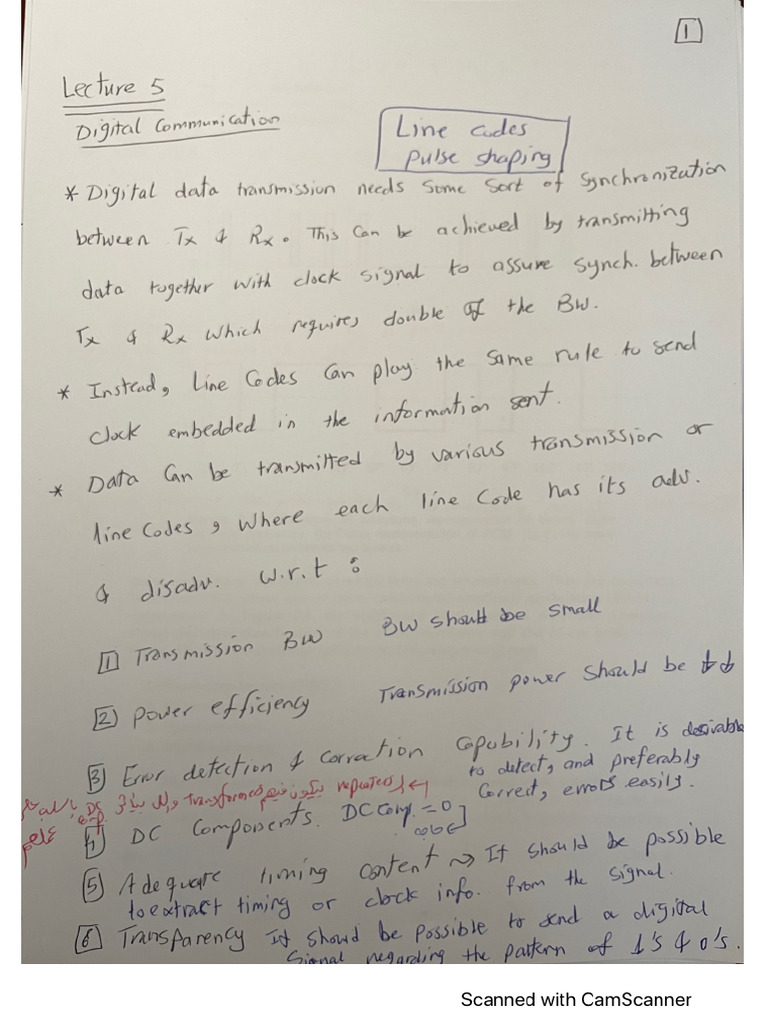 1
Lecture 5
Digital Communication
Line codes
pulse shaping
* Digital data transmission needs some sort of synchronization
between Tx & Rx. This can be achieved by transmitting
data together with clock signal to assure synch. between
Tx & Rx which requires double of the BW.
* Instead, Line Codes can play the same rule to send
clock embedded in the information sent.
* Data can be transmitted by various transmission or
line codes, where each line code has its adv.
& disadv. w.r.t :
1 Transmission BW BW should be small
2 power efficiency Transmission power should be ↓↓
3 Error detection & correction capability. It is desirable
to detect, and preferably
correct, errors easily.
repeaters بيكون فيهم transformers DC
4 DC Components. DC Comp. = 0
5 Adequate timing content → It should be possible
to extract timing or clock info. from the signal.
6 Transparency It should be possible to send a digital
signal regarding the pattern of 1's & 0's.
Scanned with CamScanner